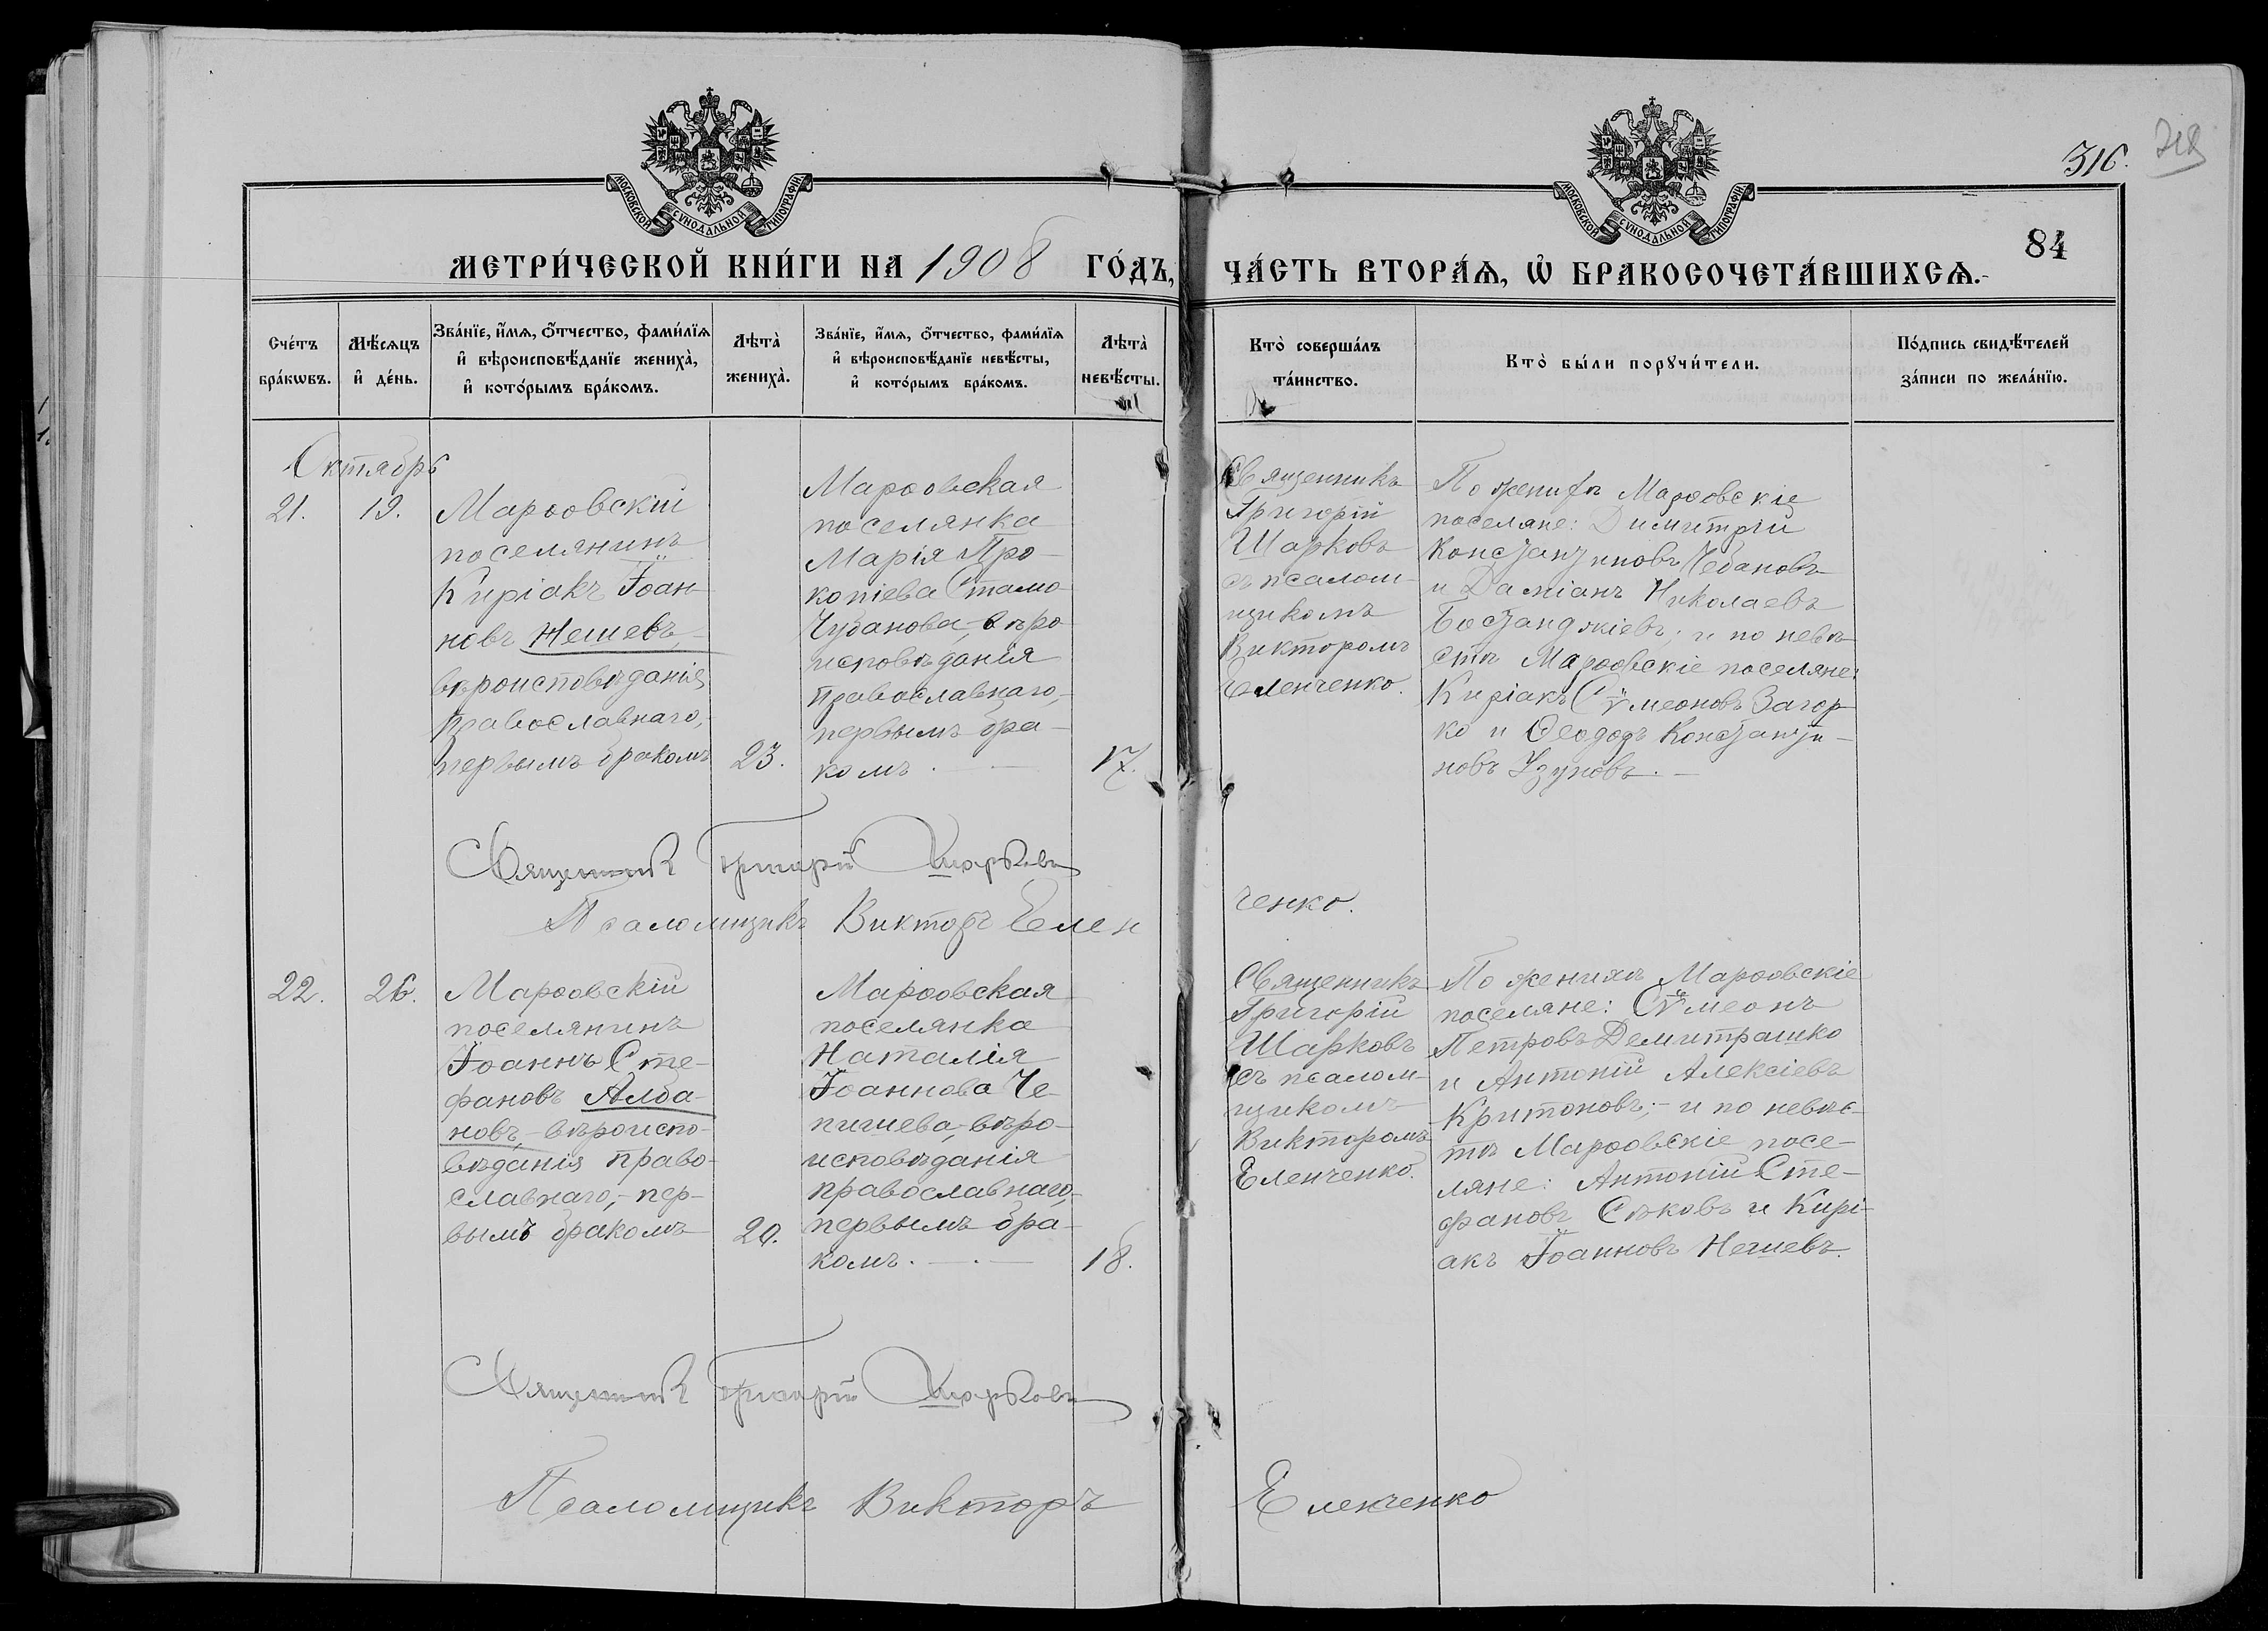 316.
318
МОСКОВСКОЙ СѴНОДАЛЬНОЙ ТИПОГРАФІИ
МОСКОВСКОЙ СѴНОДАЛЬНОЙ ТИПОГРАФІИ
84
МЕТРИ́ЧЕСКОЙ КНИ́ГИ НА 1908 ГО́ДЪ,
ЧА́СТЬ ВТОРА́Ѧ, Ѡ҆ БРАКОСОЧЕТА́ВШИХСѦ.
Сче́тъ
бра́кѡвъ.
Мѣ́сѧцъ
и҆ де́нь.
Зва́нїе, и҆́мѧ, ѻ҆́тчество, фами́лїѧ
и҆ вѣроисповѣ́данїе жениха̀,
и҆ кото́рымъ бра́комъ.
Лѣта̀
жениха̀.
Зва́нїе, и҆́мѧ, ѻ҆́тчество, фами́лїѧ
и҆ вѣроисповѣ́данїе невѣ́сты,
и҆ кото́рымъ бра́комъ.
Лѣта̀
невѣ́сты.
Кто̀ соверша́лъ
та́инство.
Кто̀ бы́ли порꙋчи́тели.
По́дпись свидѣ́телей
за́писи по жела́нїю.
Октябрь
21.
19.
Марѳовскій
поселянинъ
Киріакъ Іоан-
новъ Нешевъ,-
вѣроисповѣданія
православнаго,-
первымъ бракомъ
23.
Марѳовская
поселянка
Марія Про-
копіева Стамо-
Чубанова,- вѣро
исповѣданія
православнаго,-
первымъ бра-
комъ. —
17.
Священникъ
Григорій
Шарковъ
съ псалом-
щикомъ
Викторомъ
Еленченко.
По женихѣ Марѳовскіе
поселяне: Димитрій
Константиновъ Чебановъ
и Даміанъ Николаевъ
Бостанджіевъ; и по невѣ-
стѣ Марѳовскіе поселяне:
Киріакъ Сѵмеоновъ Загор-
ко и Ѳеодоръ Константи-
новъ Узуновъ. —
Священникъ Григорій Шарковъ
Псаломщикъ Викторъ Елен
ченко.
22.
26.
Марѳовскій
поселянинъ
Іоаннъ Сте-
фановъ Алба-
новъ,- вѣроиспо-
вѣданія право-
славнаго,- пер-
вымъ бракомъ
20.
Марѳовская
поселянка
Наталія
Іоаннова Че-
пишева,- вѣро-
исповѣданія
православнаго,-
первымъ бра-
комъ. — . —
18.
Священникъ
Григорій
Шарковъ
съ псалом-
щикомъ
Викторомъ
Еленченко.
По женихѣ Марѳовскіе
поселяне: Сѵмеонъ
Петровъ Демитрашко
и Антоній Алексіевъ
Критоновъ;- и по невѣс-
тѣ Марѳовскіе посе-
ляне: Антоній Сте-
фановъ Сѣковъ и Кирі-
акъ Іоанновъ Нешевъ.
Священникъ Григорій Шарковъ
Псаломщикъ Викторъ
Еленченко